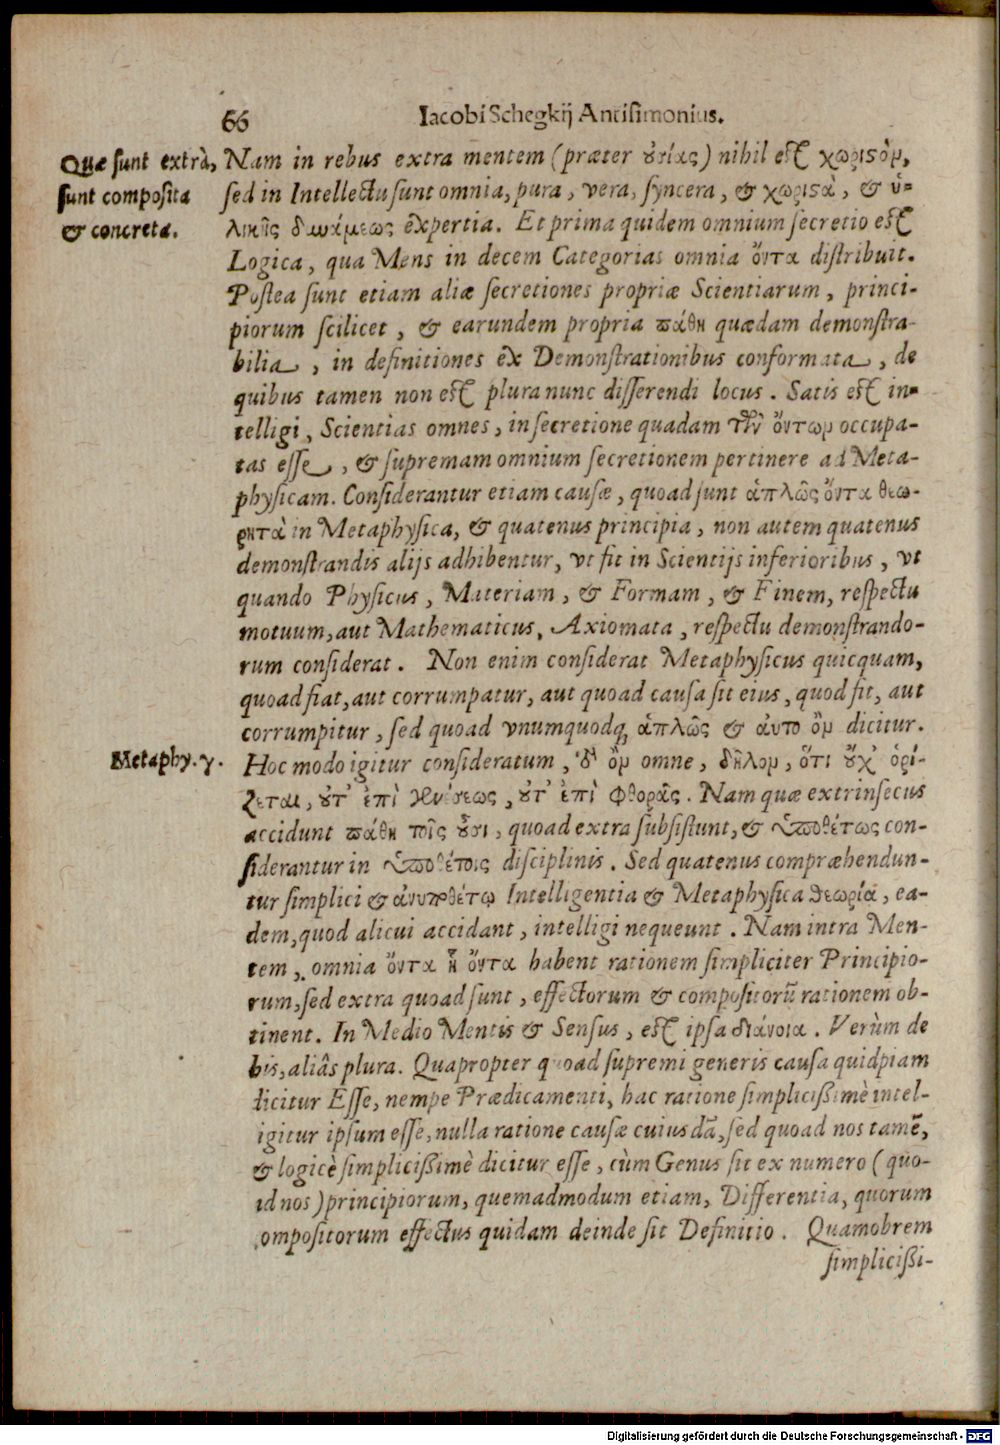 66
Iacobi Schegkij Antisimonius.
Quæ sunt extrà,
sunt composita
& concreta.
Nam in rebus extra mentem (præter οὐσίας) nihil est χωριστὸν,
sed in Intellectu sunt omnia, pura, vera, syncera, & χωριστὰ, & ὑ-
λικῆς δυνάμεως expertia. Et prima quidem omnium secretio est
Logica, qua Mens in decem Categorias omnia ὄντα distribuit.
Postea sunt etiam aliæ secretiones propriæ Scientiarum, princi-
piorum scilicet, & earundem propria πάθη quædam demonstra-
bilia, in definitiones ex Demonstrationibus conformata, de
quibus tamen non est plura nunc disserendi locus. Satis est in-
telligi, Scientias omnes, in secretione quadam τῶν ὄντων occupa-
tas esse, & supremam omnium secretionem pertinere ad Meta-
physicam. Considerantur etiam causæ, quoad sunt ἁπλῶς ὄντα θεω-
ρητὰ in Metaphysica, & quatenus principia, non autem quatenus
demonstrandis alijs adhibentur, vt fit in Scientijs inferioribus, vt
quando Physicus, Materiam, & Formam, & Finem, respectu
motuum, aut Mathematicus, Axiomata, respectu demonstrando-
rum considerat. Non enim considerat Metaphysicus quicquam,
quoad fiat, aut corrumpatur, aut quoad causa sit eius, quod fit, aut
corrumpitur, sed quoad vnumquodq; ἁπλῶς & ἀυτο ὂν dicitur.
Metaphy. γ.
Hoc modo igitur consideratum, τὸ ὂν omne, δῆλον, ὅτι οὔχ' ὁρί-
ζεται, οὔτ' ἐπὶ γενέσεως, οὔτ' ἐπὶ φθορᾶς. Nam quæ extrinsecus
accidunt πάθη τοῖς οὖσι, quoad extra subsistunt, & ὑποθέτως con-
siderantur in ὑποθέτοις disciplinis. Sed quatenus compræhendun-
tur simplici & ἀνυποθέτῳ Intelligentia & Metaphysica θεωρία, ea-
dem, quod alicui accidant, intelligi nequeunt. Nam intra Men-
tem, omnia ὄντα ᾗ ὄντα habent rationem simpliciter Principio-
rum, sed extra quoad sunt, effectorum & compositorũ rationem ob-
tinent. In Medio Mentis & Sensus, est ipsa διάνοια. Verùm de
his, aliâs plura. Quapropter quoad supremi generis causa quidpiam
dicitur Esse, nempe Prædicamenti, hac ratione simplicißimè intel-
igitur ipsum esse, nulla ratione causæ cuiusdã, sed quoad nos tamẽ,
& logicè simplicißimè dicitur esse, cùm Genus sit ex numero (quo-
ad nos) principiorum, quemadmodum etiam, Differentia, quorum
ompositorum effectus quidam deinde sit Definitio. Quamobrem
simplicißi-
Digitalisierung gefördert durch die Deutsche Forschungsgemeinschaft - DFG